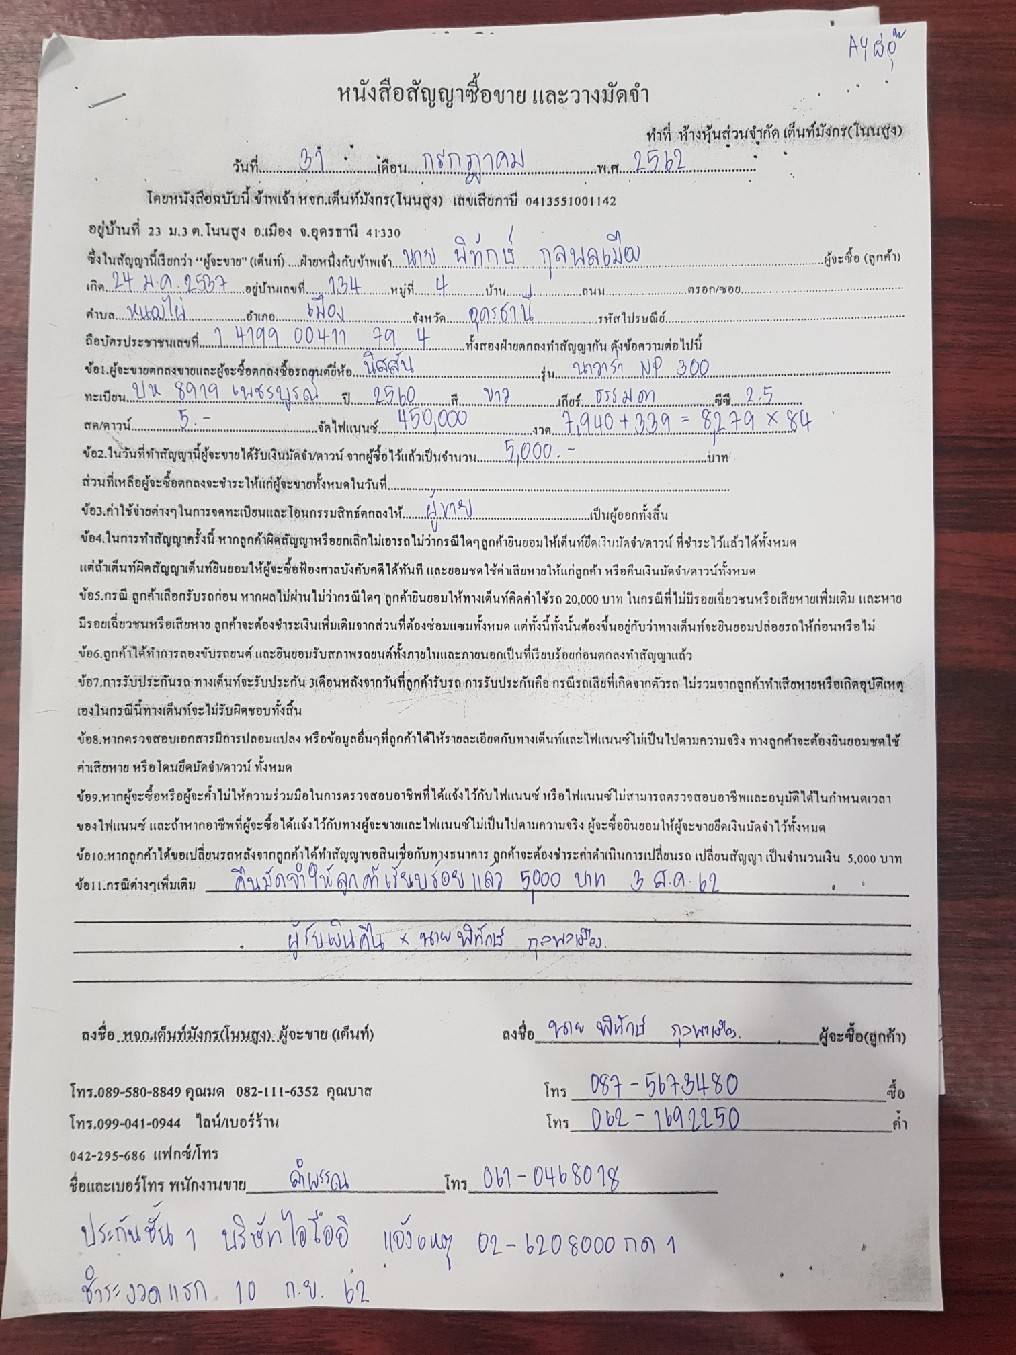 AY
หนังสือสัญญาซื้อขาย และวางมัดจำ
ทำที่ ห้างหุ้นส่วนจำกัด เต็นท์มังกร(โนนสูง)
วันที่ 31 เดือน กรกฎาคม พ.ศ. 2562
โดยหนังสือฉบับนี้ ข้าพเจ้า หจก.เต็นท์มังกร(โนนสูง) เลขเสียภาษี 0413551001142
อยู่บ้านที่ 23 ม.3 ต.โนนสูง อ.เมือง จ.อุดรธานี 41330
ซึ่งในสัญญานี้เรียกว่า "ผู้จะขาย" (เต็นท์) ฝ่ายหนึ่งกับข้าพเจ้า นาย พิทักษ์ กุลพลเมือง ผู้จะซื้อ (ลูกค้า)
เกิด 24 ม.ค. 2537 อยู่บ้านเลขที่ 134 หมู่ที่ 4 บ้าน ถนน ตรอก/ซอย
ตำบล หนองไผ่ อำเภอ เมือง จังหวัด อุดรธานี รหัสไปรษณีย์
ถือบัตรประชาชนเลขที่ 1 4199 00411 79 4 ทั้งสองฝ่ายตกลงทำสัญญากัน ดังข้อความต่อไปนี้
ข้อ1.ผู้จะขายตกลงขายและผู้จะซื้อตกลงซื้อรถยนต์ยี่ห้อ นิสสัน รุ่น นาวาร่า NP 300
ทะเบียน บห 8919 เพชรบูรณ์ ปี 2560 สี ขาว เกียร์ ธรรมดา ซีซี 2.5
สด/ดาวน์ 5.- จัดไฟแนนซ์ 450,000 งวด 7,940 + 339 = 8,279 x 84
ข้อ2.ในวันที่ทำสัญญานี้ผู้จะขายได้รับเงินมัดจำ/ดาวน์ จากผู้ซื้อไว้แล้วเป็นจำนวน 5,000.- บาท
ส่วนที่เหลือผู้จะซื้อตกลงจะชำระให้แก่ผู้จะขายทั้งหมดในวันที่
ข้อ3.ค่าใช้จ่ายต่างๆในการจดทะเบียนและโอนกรรมสิทธิ์ตกลงให้ ผู้ขาย เป็นผู้ออกทั้งสิ้น
ข้อ4.ในการทำสัญญาครั้งนี้ หากลูกค้าผิดสัญญาหรือยกเลิกไม่เอารถไม่ว่ากรณีใดๆลูกค้ายินยอมให้เต็นท์ยึดเงินมัดจำ/ดาวน์ ที่ชำระไว้แล้วได้ทั้งหมด
แต่ถ้าเต็นท์ผิดสัญญาเต็นท์ยินยอมให้ผู้จะซื้อฟ้องศาลบังคับคดีได้ทันที และยอมชดใช้ค่าเสียหายให้แก่ลูกค้า หรือคืนเงินมัดจำ/ดาวน์ทั้งหมด
ข้อ5.กรณี ลูกค้าเลือกรับรถก่อน หากผลไม่ผ่านไม่ว่ากรณีใดๆ ลูกค้ายินยอมให้ทางเต็นท์คิดค่าใช้รถ 20,000 บาท ในกรณีที่ไม่มีรอยเฉี่ยวชนหรือเสียหายเพิ่มเติม และหาย
มีรอยเฉี่ยวชนหรือเสียหาย ลูกค้าจะต้องชำระเงินเพิ่มเติมจากส่วนที่ต้องซ่อมแซมทั้งหมด แต่ทั้งนี้ทั้งนั้นต้องขึ้นอยู่กับว่าทางเต็นท์จะยินยอมปล่อยรถให้ก่อนหรือไม่
ข้อ6.ลูกค้าได้ทำการลองขับรถยนต์ และยินยอมรับสภาพรถยนต์ทั้งภายในและภายนอกเป็นที่เรียบร้อยก่อนตกลงทำสัญญาแล้ว
ข้อ7.การรับประกันรถ ทางเต็นท์จะรับประกัน 3เดือนหลังจากวันที่ลูกค้ารับรถ การรับประกันคือ กรณีรถเสียที่เกิดจากตัวรถ ไม่รวมจากลูกค้าทำเสียหายหรือเกิดอุบัติเหตุ
เองในกรณีนี้ทางเต็นท์จะไม่รับผิดชอบทั้งสิ้น
ข้อ8.หากตรวจสอบเอกสารมีการปลอมแปลง หรือข้อมูลอื่นๆที่ลูกค้าได้ให้รายละเอียดกับทางเต็นท์และไฟแนนซ์ไม่เป็นไปตามความจริง ทางลูกค้าจะต้องยินยอมชดใช้
ค่าเสียหาย หรือโดนยึดมัดจำ/ดาวน์ ทั้งหมด
ข้อ9.หากผู้จะซื้อหรือผู้จะค้ำไม่ให้ความร่วมมือในการตรวจสอบอาชีพที่ได้แจ้งไว้กับไฟแนนซ์ หรือไฟแนนซ์ไม่สามารถตรวจสอบอาชีพและอนุมัติได้ในกำหนดเวลา
ของไฟแนนซ์ และถ้าหากอาชีพที่ผู้จะซื้อได้แจ้งไว้กับทางผู้จะขายและไฟแนนซ์ไม่เป็นไปตามความจริง ผู้จะซื้อยินยอมให้ผู้จะขายยึดเงินมัดจำไว้ทั้งหมด
ข้อ10.หากลูกค้าได้ขอเปลี่ยนรถหลังจากลูกค้าได้ทำสัญญาขอสินเชื่อกับทางธนาคาร ลูกค้าจะต้องชำระค่าดำเนินการเปลี่ยนรถ เปลี่ยนสัญญา เป็นจำนวนเงิน 5,000 บาท
ข้อ11.กรณีต่างๆเพิ่มเติม คืนมัดจำให้ลูกค้าเรียบร้อยแล้ว 5000 บาท 3 ส.ค. 62
ผู้รับเงินคืน x นาย พิทักษ์ กุลพลเมือง
ลงชื่อ หจก.เต็นท์มังกร(โนนสูง) ผู้จะขาย (เต็นท์) ลงชื่อ นาย พิทักษ์ กุลพลเมือง ผู้จะซื้อ(ลูกค้า)
โทร.089-580-8849 คุณมด 082-111-6352 คุณบาส โทร 087-5673480 ซื้อ
โทร.099-041-0944 ไลน์/เบอร์ร้าน โทร 062-1692250 ค้ำ
042-295-686 แฟกซ์/โทร
ชื่อและเบอร์โทร พนักงานขาย ลำพรรณ โทร 061-0468018
ประกันชั้น 1 บริษัทไอโออิ แจ้งเหตุ 02-6208000 กด 1
ชำระงวดแรก 10 ก.ย. 62